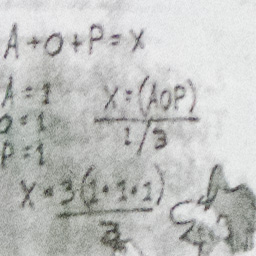 A+O+P=X
A=1
O=1
P=1
X=(AOP)
1/3
X=3(1•1•1)
3